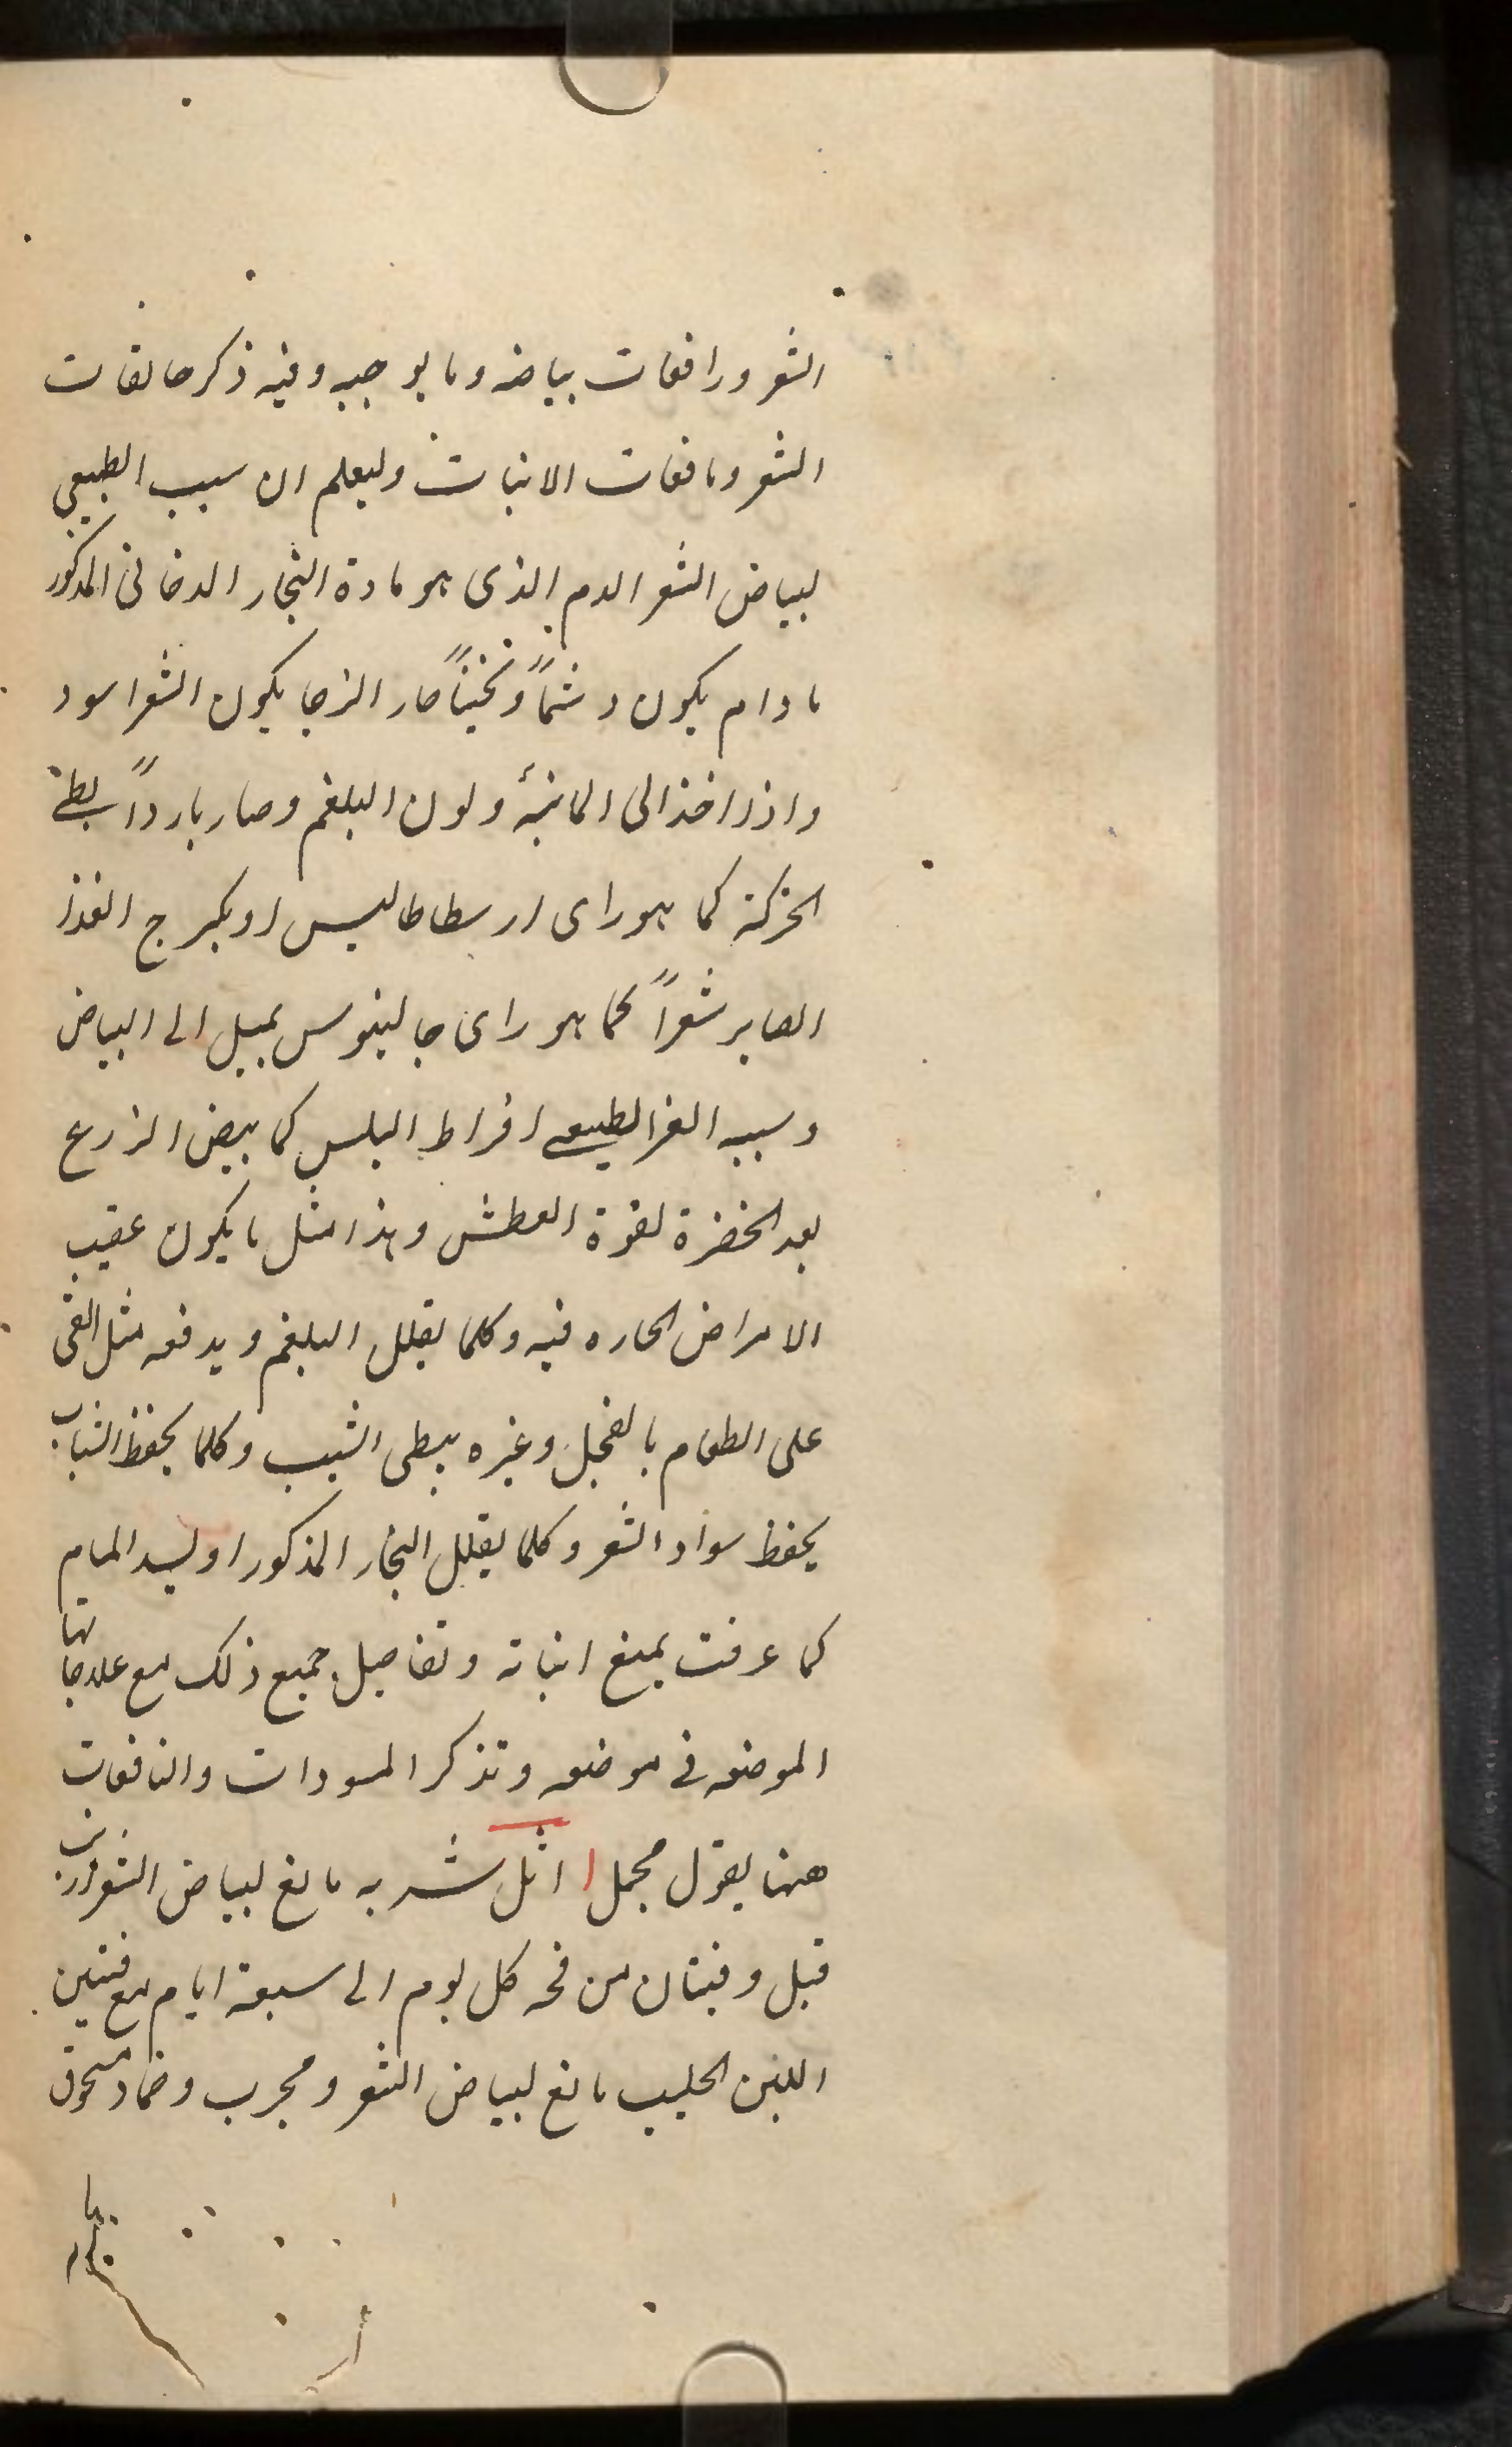 الشعر ورافعات بياضه وما يوجبه وفيه ذكر حالقات
الشعر ومانعات الانبات وليعلم ان سبب الطبيعي
لبياض الشعر الدم الذى هو مادة البخار الدخانى المذكور
مادام يكون دسماً وثخيناً حار الزجا يكون الشعر اسود
واذا اخذ الى المائية ولون البلغم وصار بارداً بطئ
الحركة كما هو راى ارسطاطاليس او يكرج الغذا
الصاير شعراً كما هو راى جالينوس يميل الى البياض
وسببه الغير الطبيعي افراط اليبس كما يبيض الزرع
بعد الخضرة لقوة العطش وهذا مثل ما يكون عقيب
الامراض الحاره فيه وكلما يقلل البلغم ويدفعه مثل القى
على الطعام بالفجل وغيره يبطى الشيب وكلما يحفظ الشباب
يحفظ سواد الشعر وكلما يقلل البخار المذكور او يسد المسام
كما عرفت يمنع انباته وتفاصيل جميع ذلك مع علاجاتها
الموضعه فى موضعه وتذكر المسودات والنافعات
ههنا بقول مجمل اثل شربه مانع لبياض الشعر
قبل وقبتان من قحه كل يوم الى سبعة ايام مع
اللبن الحليب مانع لبياض الشعر ومجرب وضماد مسحوق